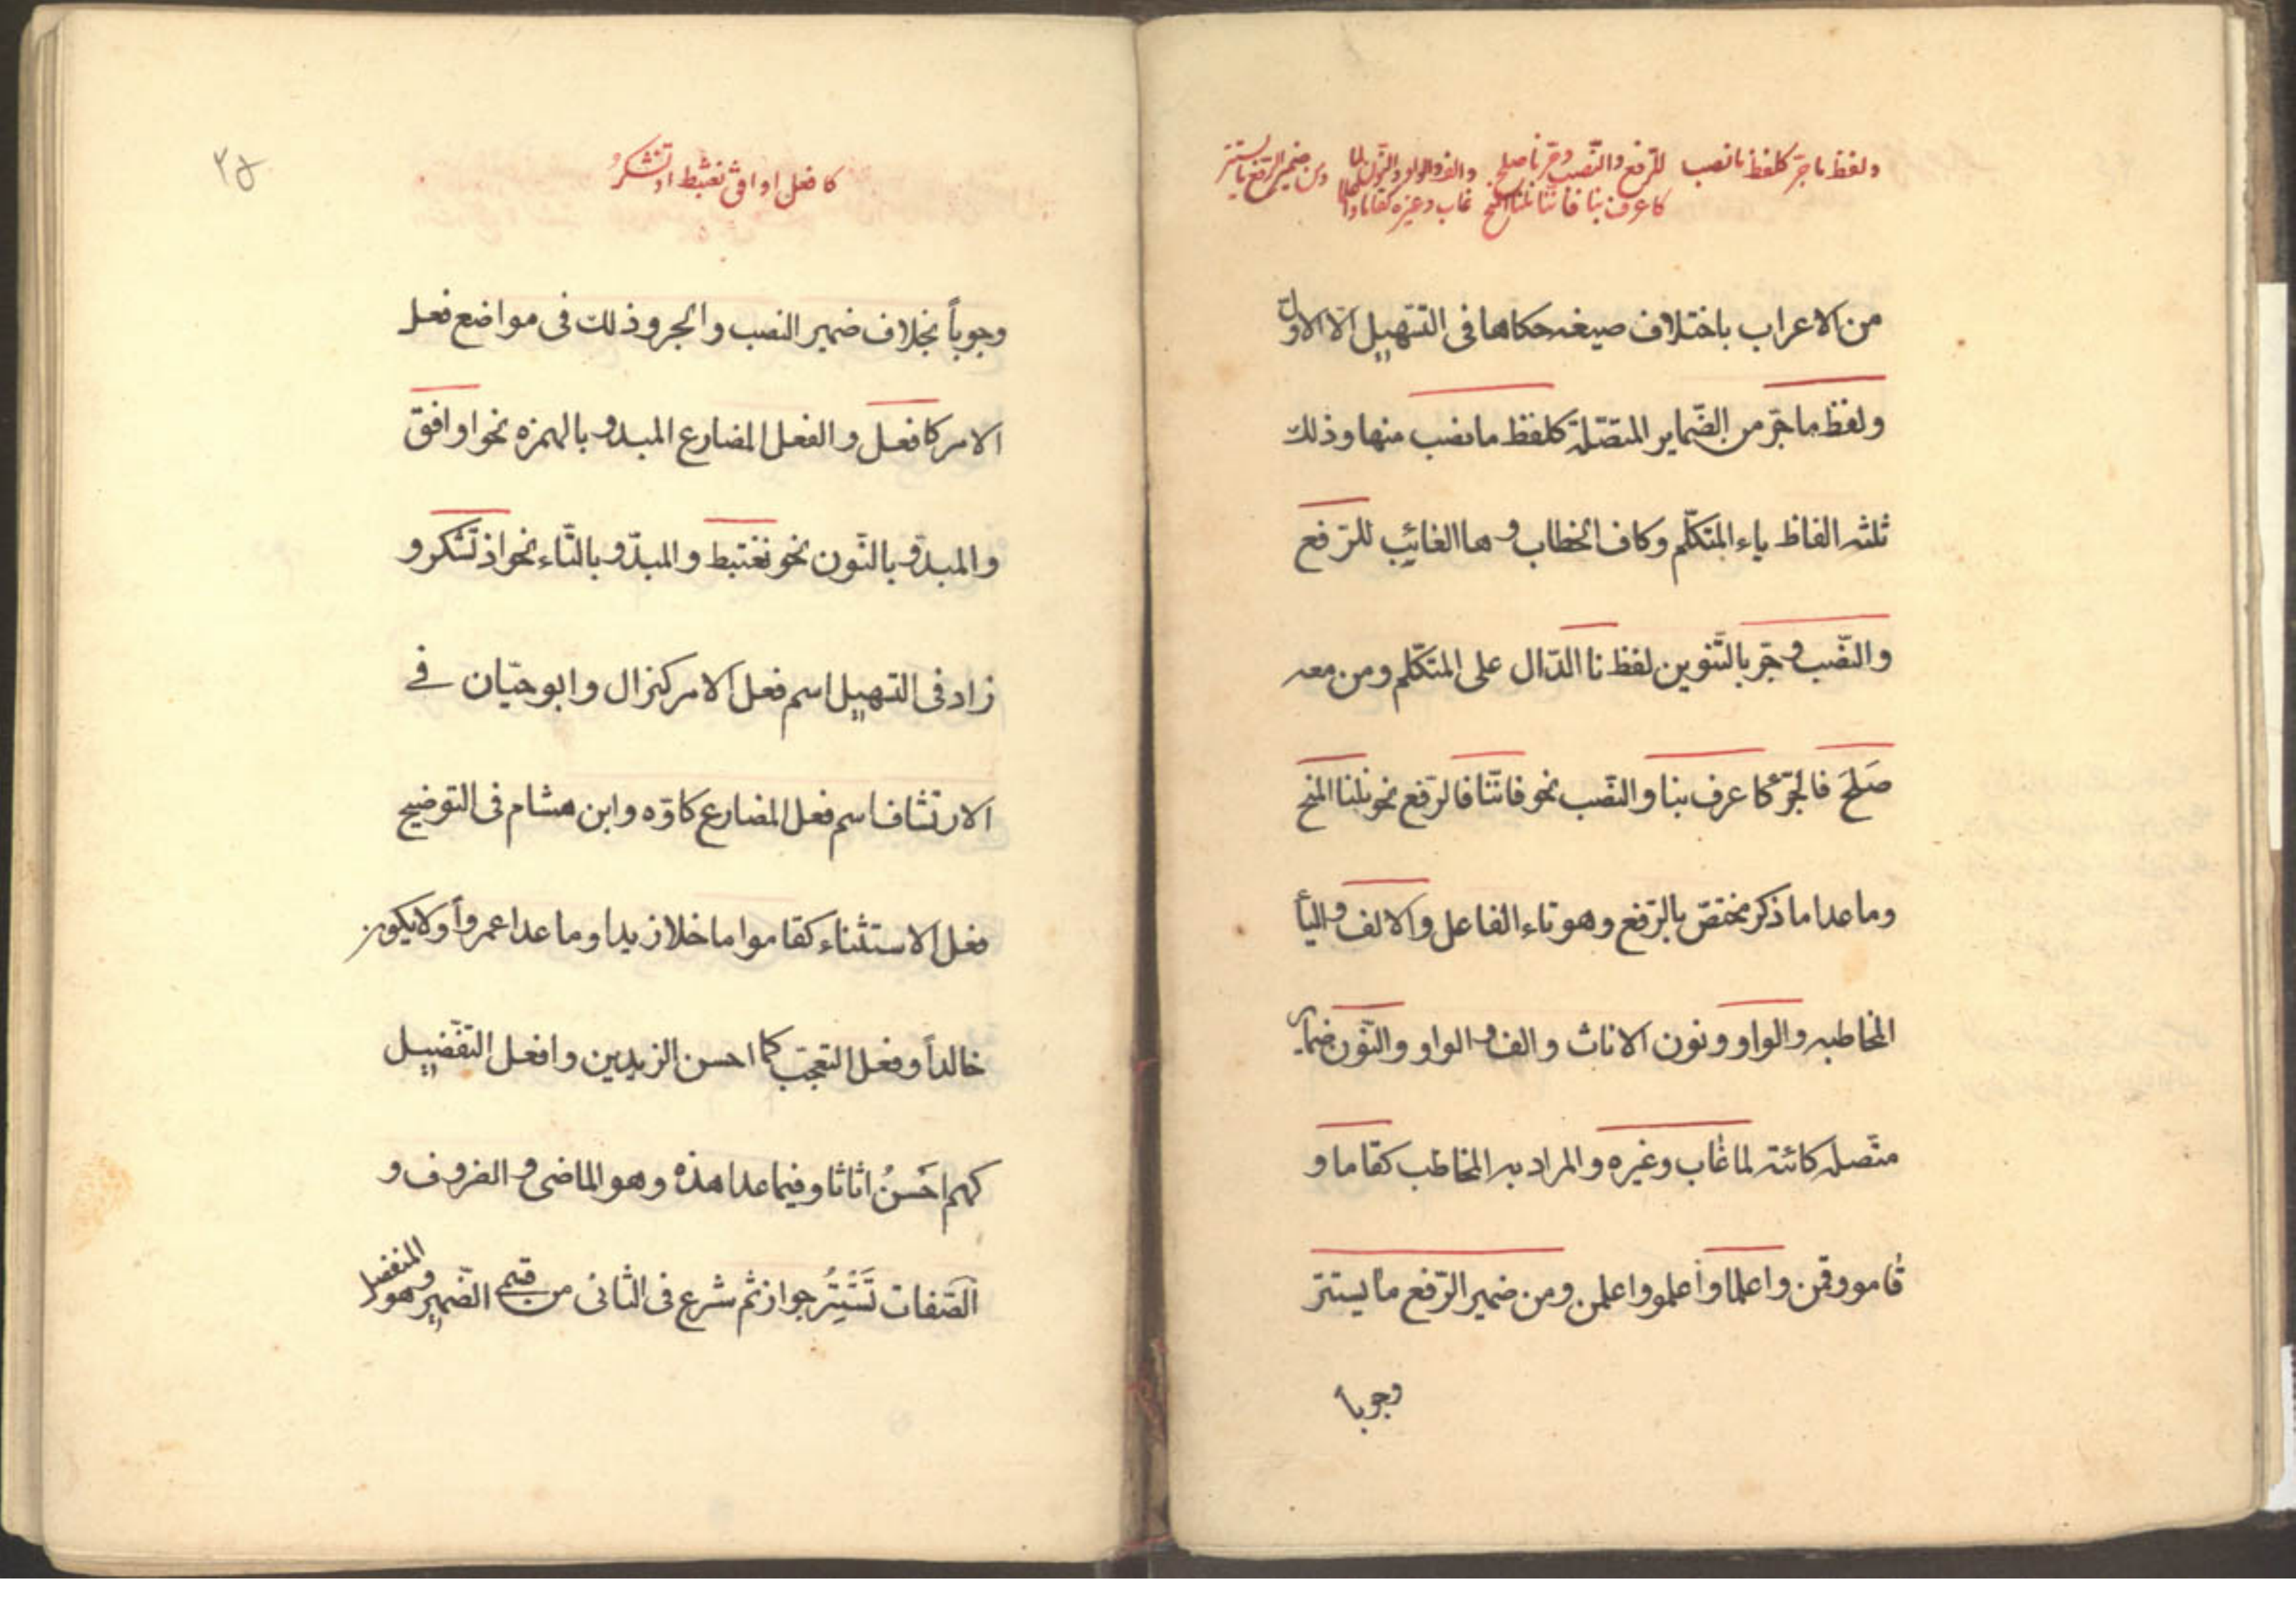 ولفظ ما جرّ كلفظ ما نصب للرّفع والنّصب وجرّ نا صلح والف والواو والنّون لما ومن ضمير الرّفع ما يستتر
كاعرف بنا فانّنا نلنا المنح غاب وغيره كقاما واعلما
من الاعراب باختلاف صيغه حكاها فى التّسهيل الّا الاوّل
ولفظ ما جرّ من الضّماير المتّصلة كلفظ ما نصب منها وذلك
ثلثه الفاظ ياء المتكلّم وكاف الخطاب وها الغائب للرّفع
والنّصب وجرّ بالتّنوين لفظ نا الدّال على المتكلّم ومن معه
صَلَحَ فالجرّ كاعرف بنا والنّصب نحو فانّنا فالرّفع نحو نلنا المنح
وما عدا ما ذكر مختصّ بالرّفع وهو تاء الفاعل والالف والياء
المخاطبه والواو ونون الاناث والف والواو والنّون ضماير
متّصله كائنة لما غاب وغيره والمراد به المخاطب كقاما و
قامو وقمن واعلما واعلمو واعلمن ومن ضمير الرّفع ما يستتر
وجوباً
٢٥
كافعل اوافق نغتبط اذ تشكرُ
وجوباً بخلاف ضمير النصب والجر وذلك فى مواضع فعل
الامر كافعل والفعل المضارع المبدو بالهمزه نحو اوافق
والمبدوّ بالنّون نحو نغتبط والمبدّو بالتّاء نحو اذ تشكر و
زاد فى التسهيل اسم فعل الامر كنزال وابو حيّان فے
الارتشاف اسم فعل المضارع كاوّه وابن هشام فى التوضيح
فعل الاستثناء كقاموا ما خلا زيدا وما عدا عمرواً ولا يكون
خالداً وفعل التعجّب كما احسن الزيدين وافعل التفّضيل
كهم احَسنُ اثاثا وفيما عدا هذه وهو الماضى والضروف و
الصّفات تَسْتَتِرُ جواز ثم شرع فى الثانى من قسمے الضّمير وهو المنفصل